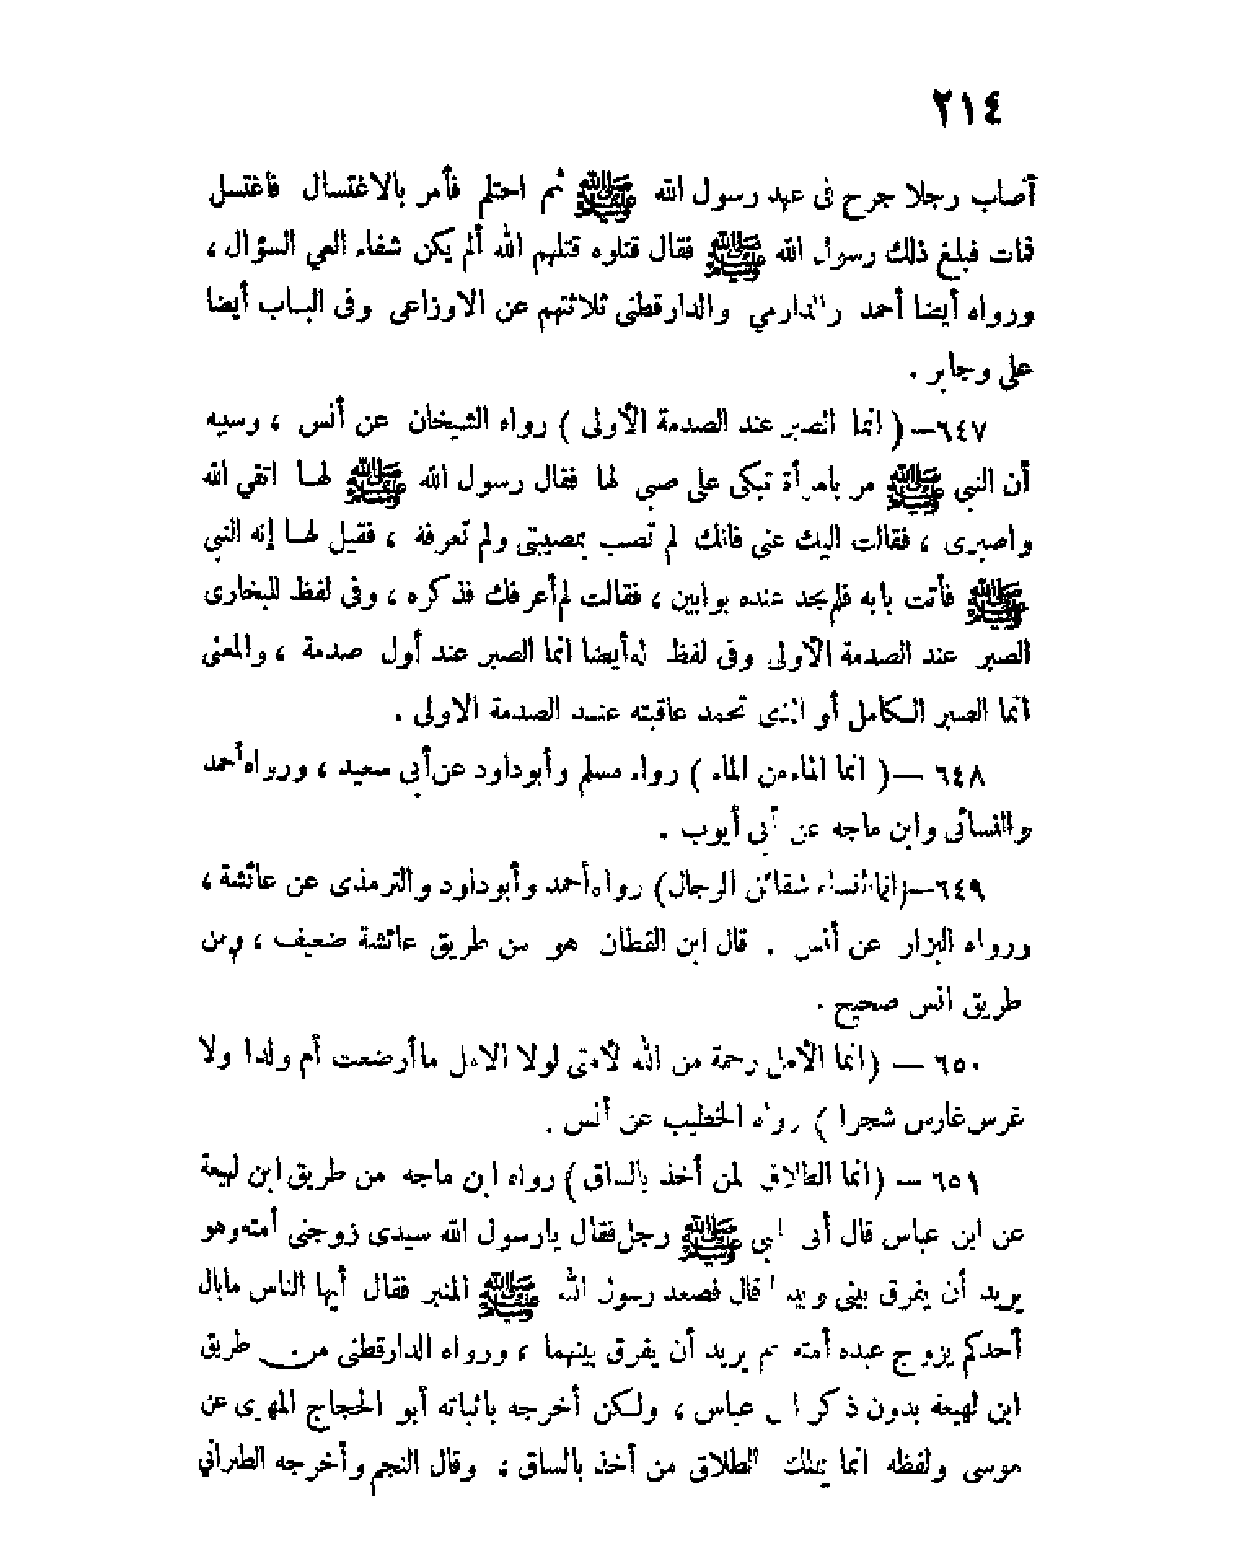 ٢١٤
أصاب رجلا جرح فى عهد رسول الله ﷺ ثم احتلم فأمر بالاغتسال فاغتسل
فمات فبلغ ذلك رسول الله ﷺ فقال قتلوه قتلهم الله ألم يكن شفاء العي السؤال ،
ورواه أيضا أحمد والدارمي والدارقطنى ثلاثتهم عن الاوزاعى وفى الباب أيضا
على وجابر .
٦٤٧— ( انما الصبر عند الصدمة الأولى ) رواه الشيخان عن أنس ، وسببه
أن النبي ﷺ مر بامرأة تبكى على صبي لها فقال رسول الله ﷺ لها اتقي الله
واصبرى ، فقالت اليك عنى فانك لم تصب بمصيبتى ولم تعرفة ، فقيل لها إنه النبي
ﷺ فأتت بابه فلم تجد عنده بوابين ، فقالت لم أعرفك فذكره ، وفى لفظ للبخارى
الصبر عند الصدمة الأولى وفى لفظ له أيضا انما الصبر عند أول صدمة ، والمعنى
انما الصبر الكامل أو الذى تحمد عاقبته عند الصدمة الاولى .
٦٤٨ —( انما الماء من الماء ) رواه مسلم وأبوداود عن أبي سعيد ، ورواه أحمد
والنسائى وابن ماجه عن أبى أيوب .
٦٤٩—(انما النساء شقائق الرجال) رواه أحمد وأبوداود والترمذى عن عائشة ،
ورواه البزار عن أنس . قال ابن القطان هو من طريق عائشة ضعيف ، ومن
طريق انس صحيح .
٦٥٠ — (انما الأمل رحمة من الله لأمتى لولا الامل ماأرضعت أم ولدا ولا
غرس غارس شجرا ) رواه الخطيب عن أنس .
٦٥١ — (انما الطلاق لمن أخذ بالساق) رواه ابن ماجه من طريق ابن لهيعة
عن ابن عباس قال أتى النبي ﷺ رجل فقال يارسول الله سيدى زوجنى أمته وهو
يريد أن يفرق بينى وبينها قال فصعد رسول الله ﷺ المنبر فقال أيها الناس مابال
أحدكم يزوج عبده أمته ثم يريد أن يفرق بينهما ، ورواه الدارقطنى من طريق
ابن لهيعة بدون ذكر ابن عباس ، ولكن أخرجه باثباته أبو الحجاج المهرى عن
موسى ولفظه انما يملك الطلاق من أخذ بالساق ؛ وقال النجم وأخرجه الطبراني